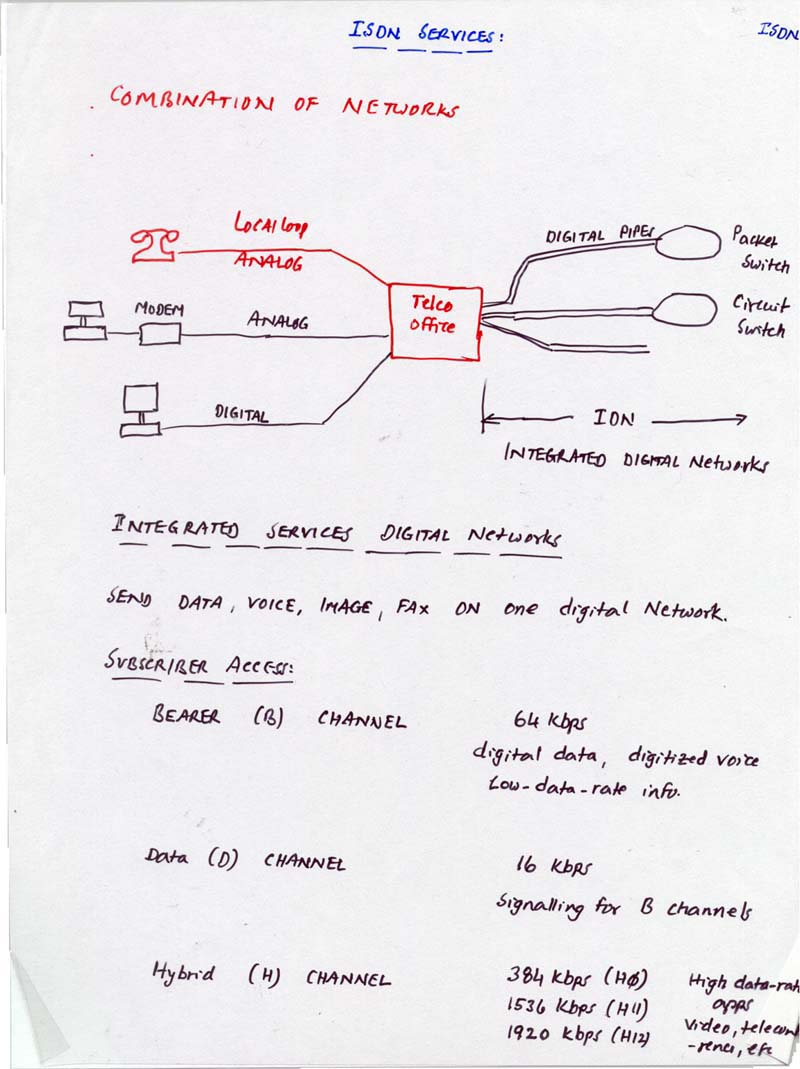 ISDN SERVICES:
ISDN
. COMBINATION OF NETWORKS
Local loop
ANALOG
DIGITAL PIPES
Packet
Switch
MODEM
ANALOG
Telco
Office
Circuit
Switch
DIGITAL
IDN
INTEGRATED DIGITAL Networks
INTEGRATED SERVICES DIGITAL Networks
SEND DATA, VOICE, IMAGE, FAX ON one digital Network.
SUBSCRIBER ACCESS:
BEARER (B) CHANNEL 64 Kbps
digital data, digitized voice
Low-data-rate info.
Data (D) CHANNEL 16 Kbps
Signalling for B channels
Hybrid (H) CHANNEL 384 Kbps (HØ) High data-rat
1536 Kbps (H11) apps
1920 Kbps (H12) Video, telecon
-rence, etc